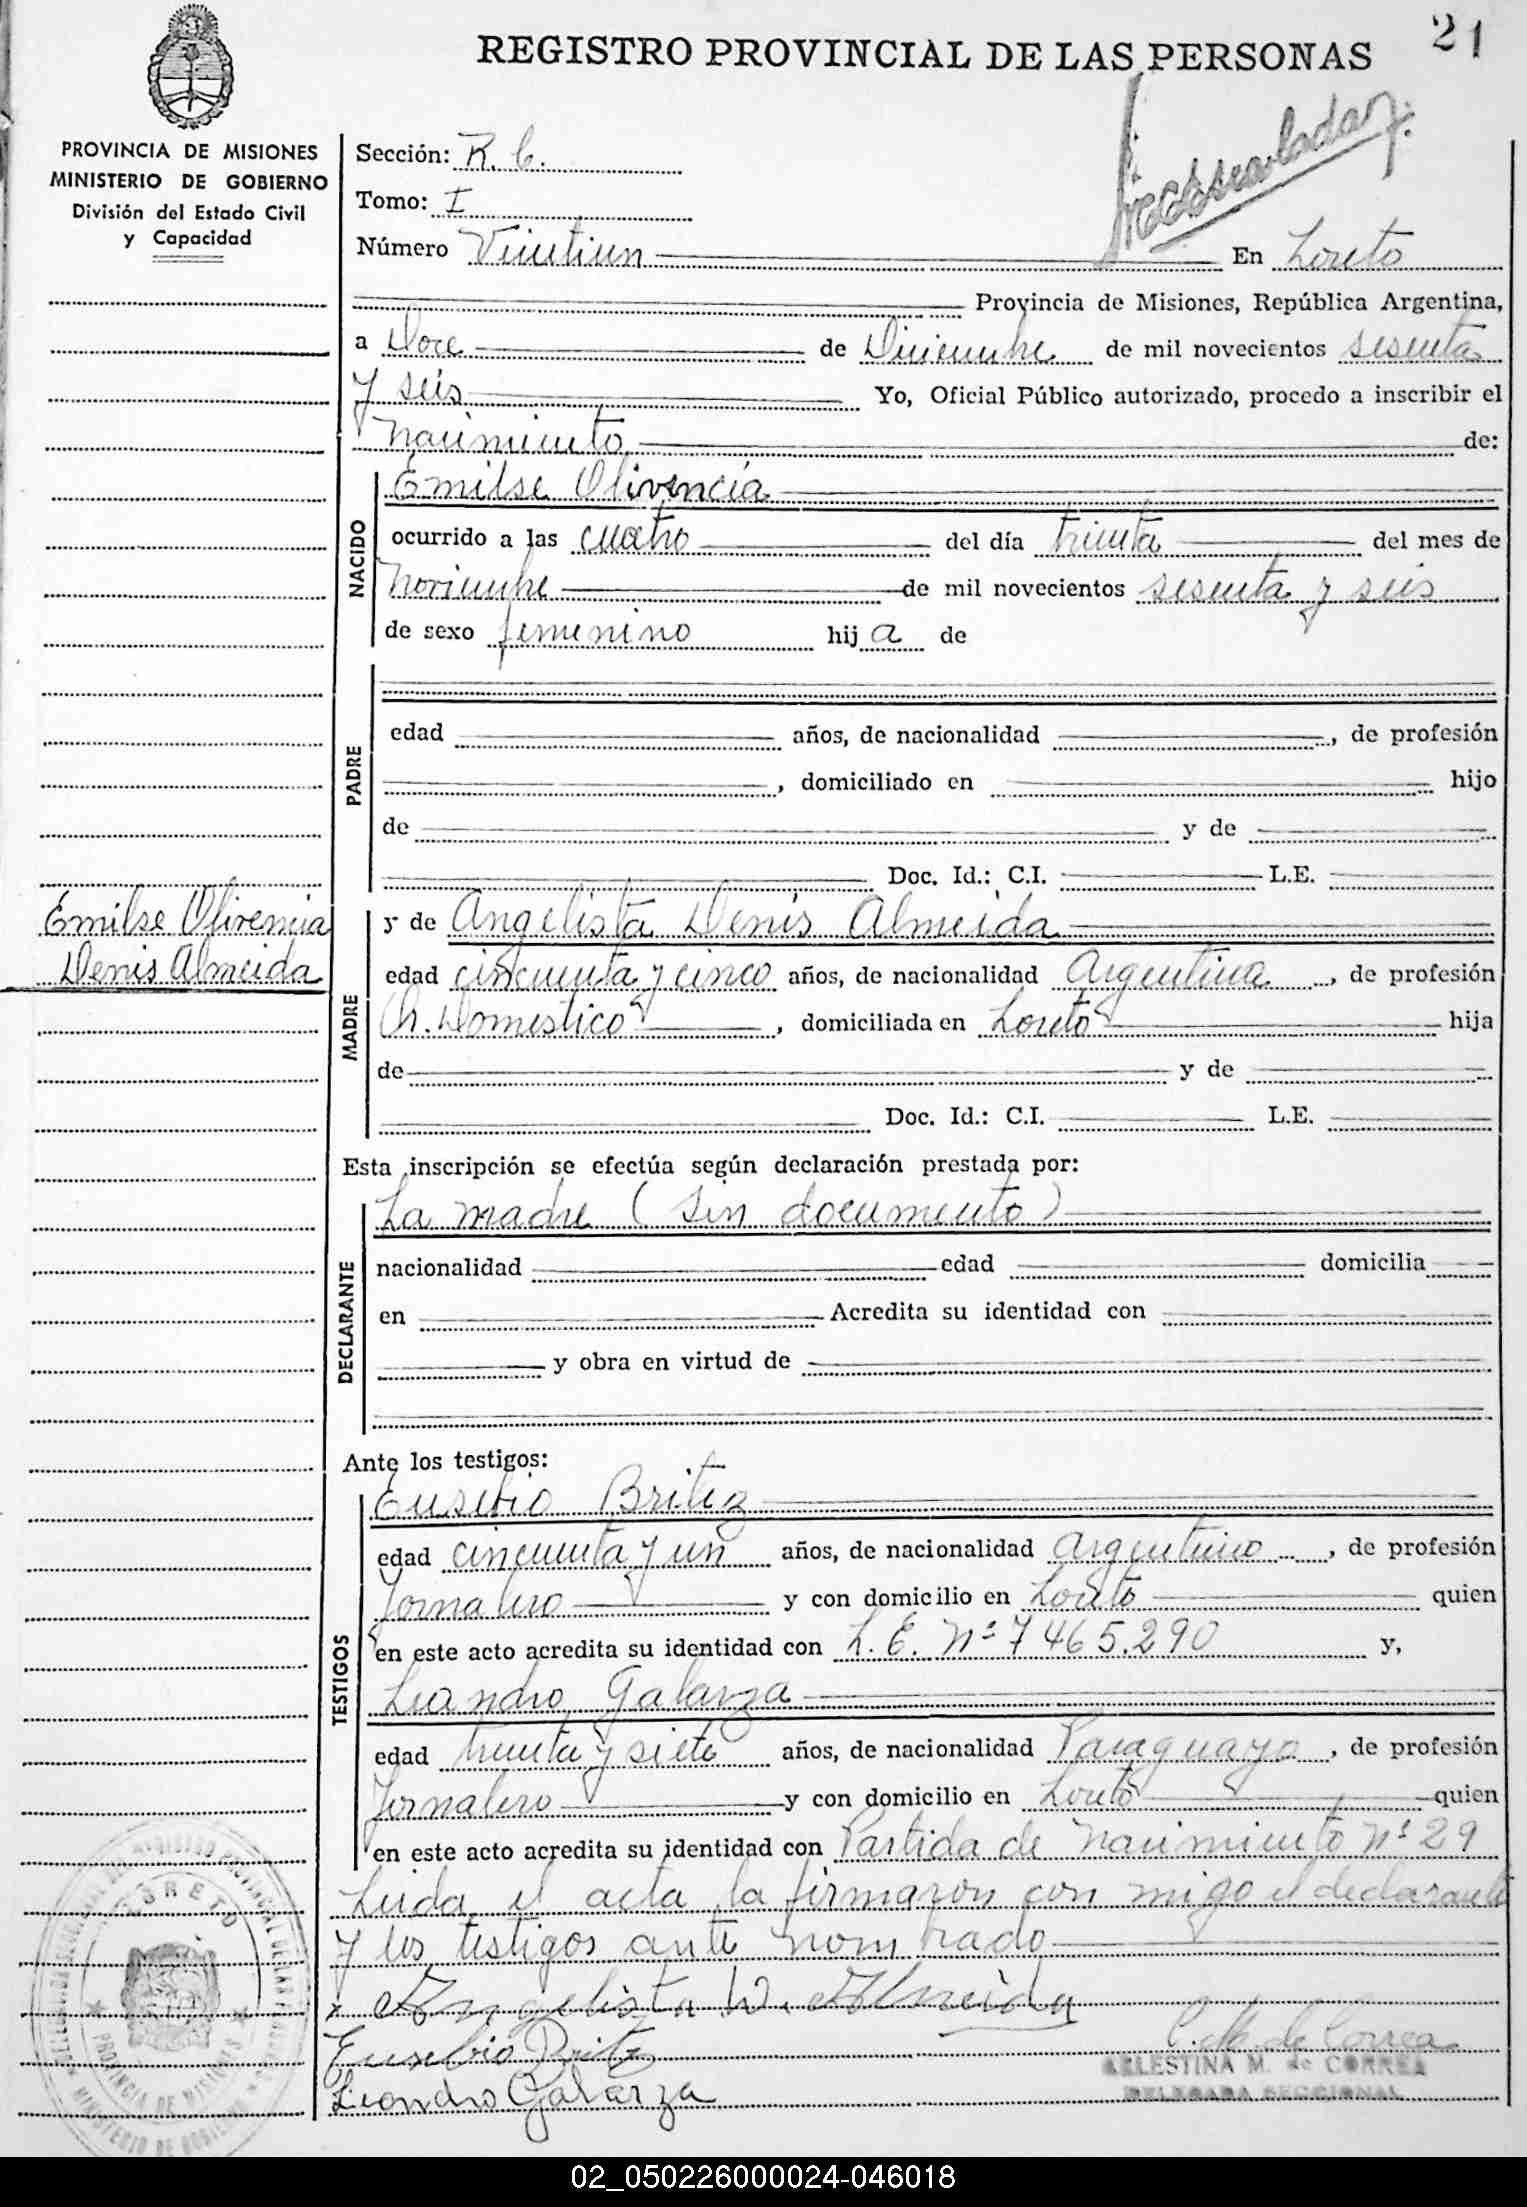 21
REGISTRO PROVINCIAL DE LAS PERSONAS
PROVINCIA DE MISIONES
MINISTERIO DE GOBIERNO
División del Estado Civil
y Capacidad
Sección: R. C.
Tomo: I
Número Veintiun En Loreto
Provincia de Misiones, República Argentina,
a Doce de Diciembre de mil novecientos sesenta
y seis Yo, Oficial Público autorizado, procedo a inscribir el
Nacimiento de:
NACIDO
Emilse Olivencia
ocurrido a las cuatro del día treinta del mes de
Noviembre de mil novecientos sesenta y seis
de sexo femenino hij a de
PADRE
edad años, de nacionalidad , de profesión
, domiciliado en hijo
de y de
Doc. Id.: C.I. L.E.
Emilse Olivencia
Denis Almeida
MADRE
y de Angelista Denis Almeida
edad cincuenta y cinco años, de nacionalidad Argentina , de profesión
Q. Domestico , domiciliada en Loreto hija
de y de
Doc. Id.: C.I. L.E.
Esta inscripción se efectúa según declaración prestada por:
DECLARANTE
La madre (Sin documento)
nacionalidad edad domicilia
en Acredita su identidad con
y obra en virtud de
Ante los testigos:
TESTIGOS
Eusebio Britez
edad cincuenta y un años, de nacionalidad Argentino , de profesión
Jornalero y con domicilio en Loreto quien
en este acto acredita su identidad con L. E. Nº 7465.290 y,
Leandro Galarza
edad treinta y siete años, de nacionalidad Paraguayo , de profesión
Jornalero y con domicilio en Loreto quien
en este acto acredita su identidad con Partida de Nacimiento Nº 29
Leida el acta la firmaron con migo el declarante
y los testigos ante nombrado
x Angelista D. Almeida
Eusebio Britez
Leandro Galarza
C. M. de Correa
CELESTINA M. de CORREA
DELEGADA SECCIONAL
LORETO
PROVINCIA DE MISIONES
02_050226000024-046018